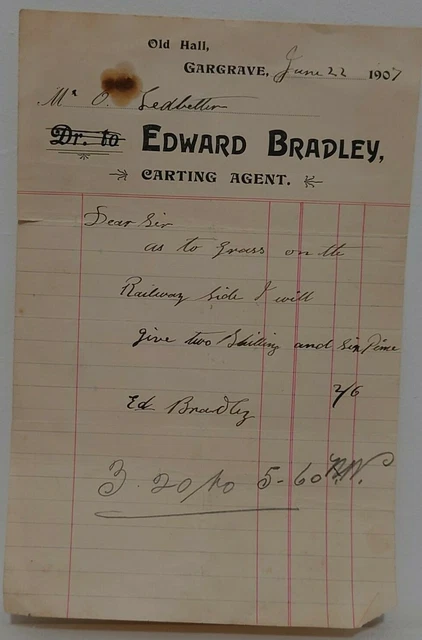 Old Hall,
GARGRAVE, June 22 1907
Mr O. Ledbetter
Dr. to EDWARD BRADLEY,
CARTING AGENT.
Dear Sir
as to Grass on the
Railway Side I will
give two Shilling and Six Pence
2/6
Ed Bradley
3. 20 to 5-60